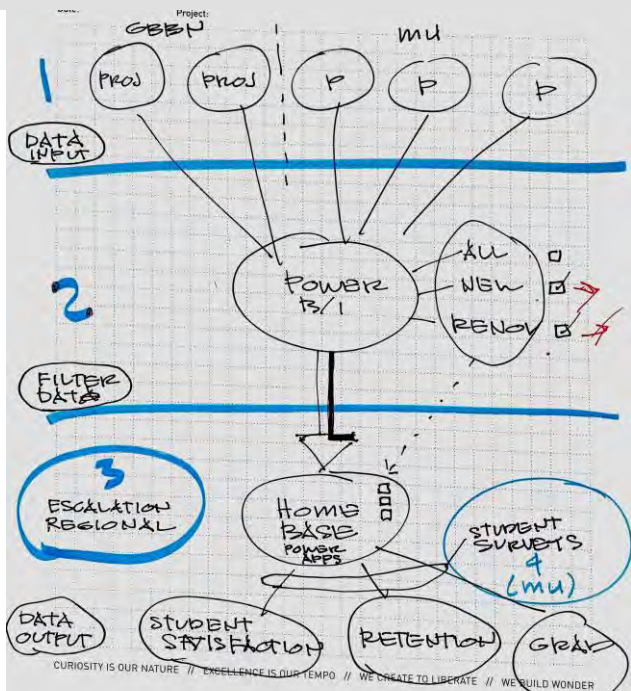 Project:
GBBN
MU
1
PROJ
PROJ
P
P
P
DATA
INPUT
2
POWER
B/I
ALL
NEW
RENOV
FILTER
DATA
3
ESCALATION
REGIONAL
HOME
BASE
POWER
APPS
STUDENT
SURVEYS
4
(MU)
DATA
OUTPUT
STUDENT
SATISFACTION
RETENTION
GRAD
CURIOSITY IS OUR NATURE // EXCELLENCE IS OUR TEMPO // WE CREATE TO LIBERATE // WE BUILD WONDER